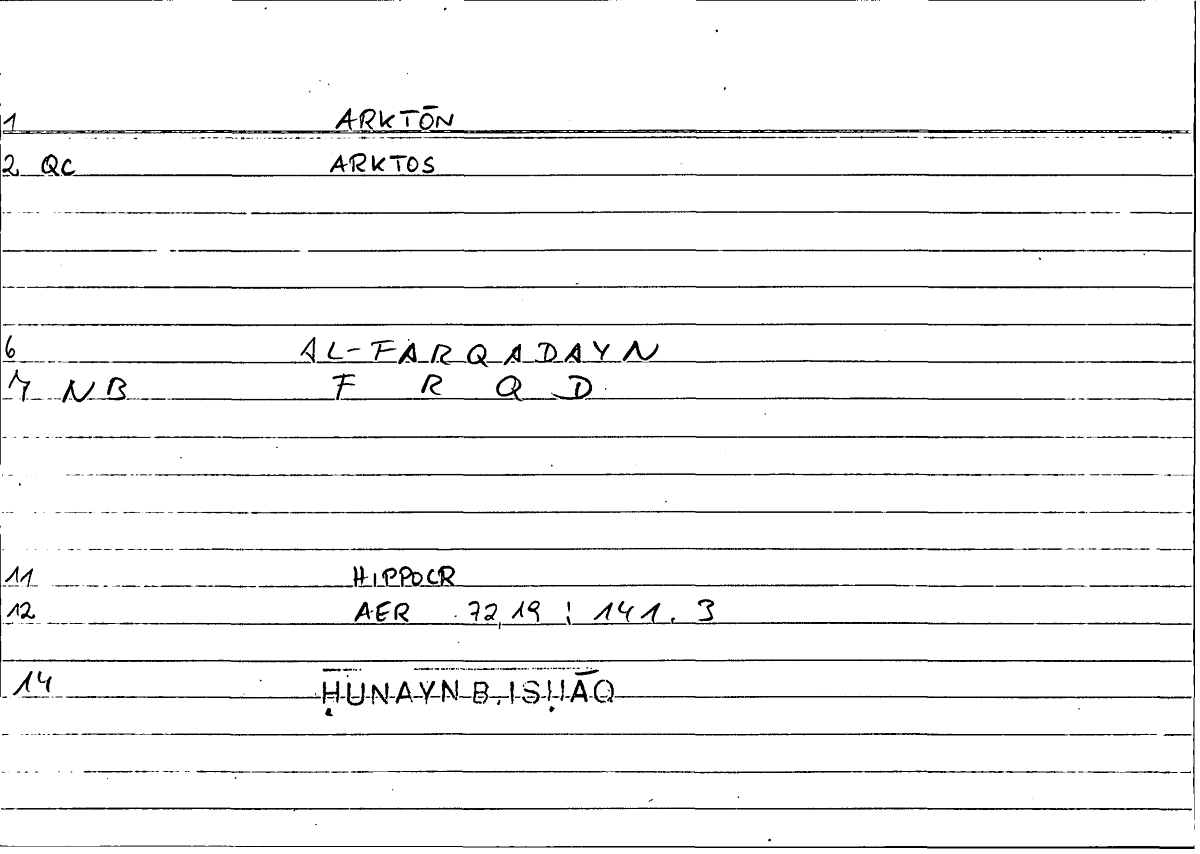 1 ARKTŌN
2 QC ARKTOS
6 AL-FARQADAYN
7 NB F R Q D
11 HIPPOCR
12 AER 72,19 ; 141.3
14 ḤUNAYN B. ISḤĀQ